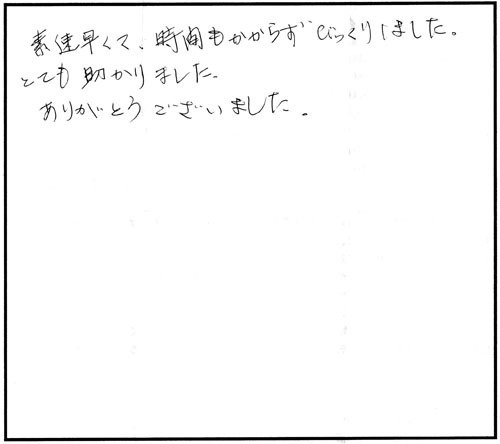 素速早くて、時間もかからずびっくりしました。
とても助かりました。
ありがとうございました。